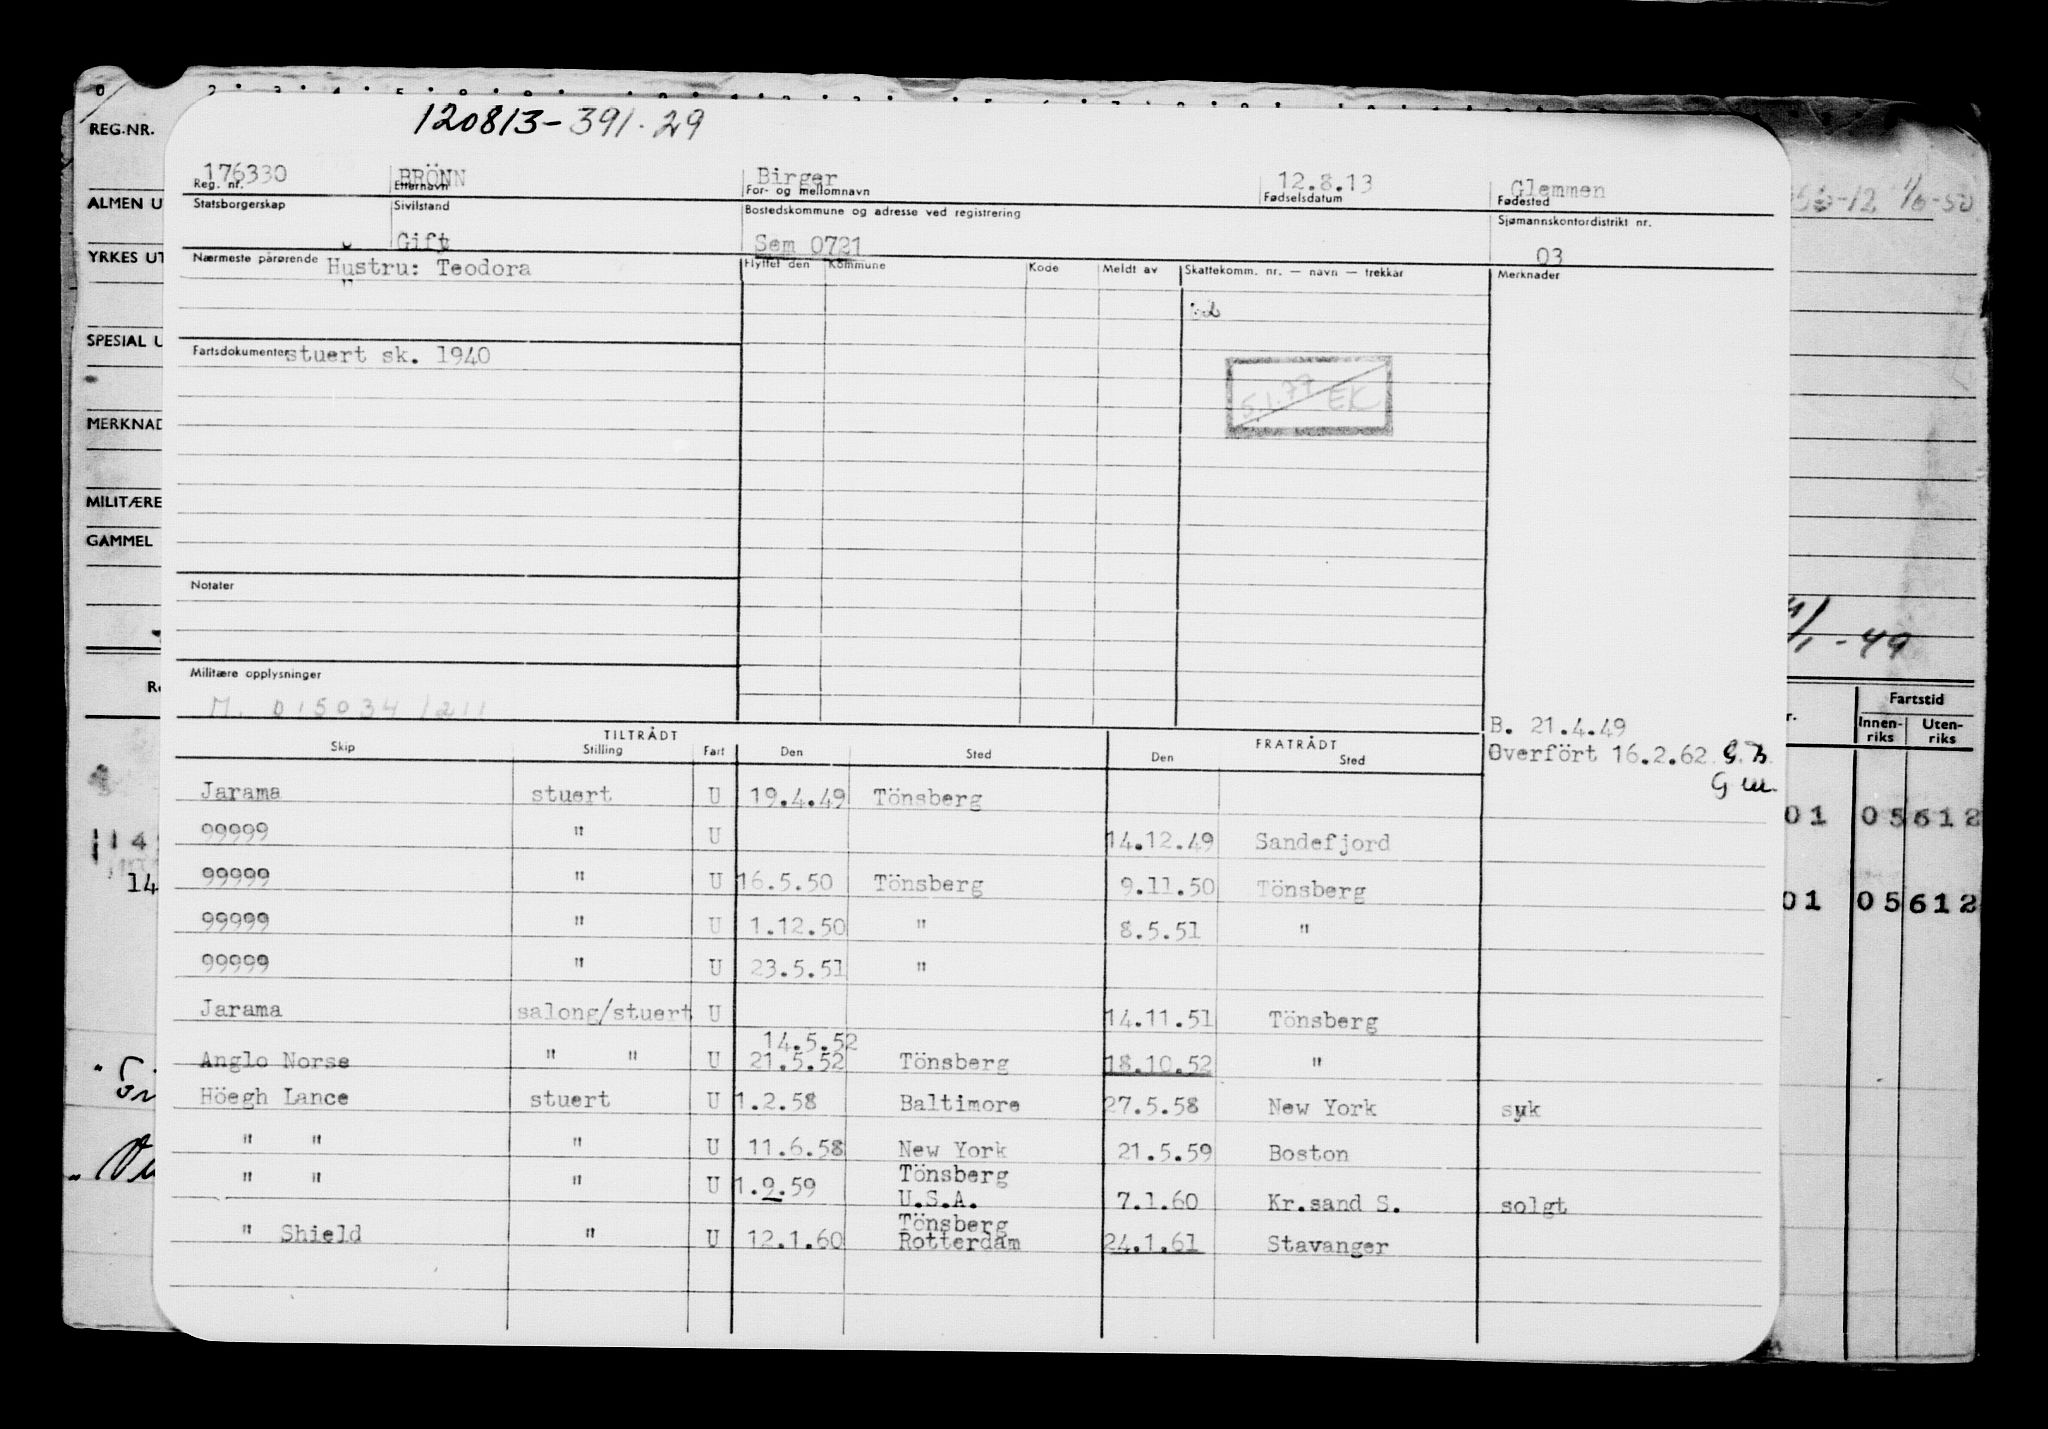 REG.NR.
120813-391.29
176330 BRÖNN Birger 12.8.13 Glemmen
Reg. nr. Etternavn For- og mellomnavn Fødselsdatum Fødested
Statsborgerskap Sivilstand Bostedskommune og adresse ved registrering Sjømannskontordistrikt nr.
Gift Sem 0721 03
Nærmeste pårørende Hustru: Teodora Flyttet den Kommune Kode Meldt av Skattekomm. nr. — navn — trekkår Merknader
"
Fartsdokumenter stuert sk. 1940
5.1.79 EK
Notater
Militære opplysninger
M. 015034/211
B. 21.4.49
Overfört 16.2.62 G.B.
TILTRÅDT FRATRÅDT
Skip Stilling Fart Den Sted Den Sted
Jarama stuert U 19.4.49 Tönsberg
99999 " U 14.12.49 Sandefjord
99999 " U 16.5.50 Tönsberg 9.11.50 Tönsberg
99999 " U 1.12.50 " 8.5.51 "
99999 " U 23.5.51 "
Jarama salong/stuert U 14.11.51 Tönsberg
14.5.52
Anglo Norse " " U 21.5.52 Tönsberg 18.10.52 "
Höegh Lance stuert U 1.2.58 Baltimore 27.5.58 New York syk
" " " U 11.6.58 New York 21.5.59 Boston
Tönsberg
" " " U 1.9.59 U.S.A. 7.1.60 Kr.sand S. solgt
Tönsberg
" Shield " U 12.1.60 Rotterdam 24.1.61 Stavanger
ALMEN U
YRKES UT
SPESIAL U
MERKNAD
MILITÆRE
GAMMEL
14
-49
Fartstid
Innen-riks Uten-riks
01 05612
01 05612